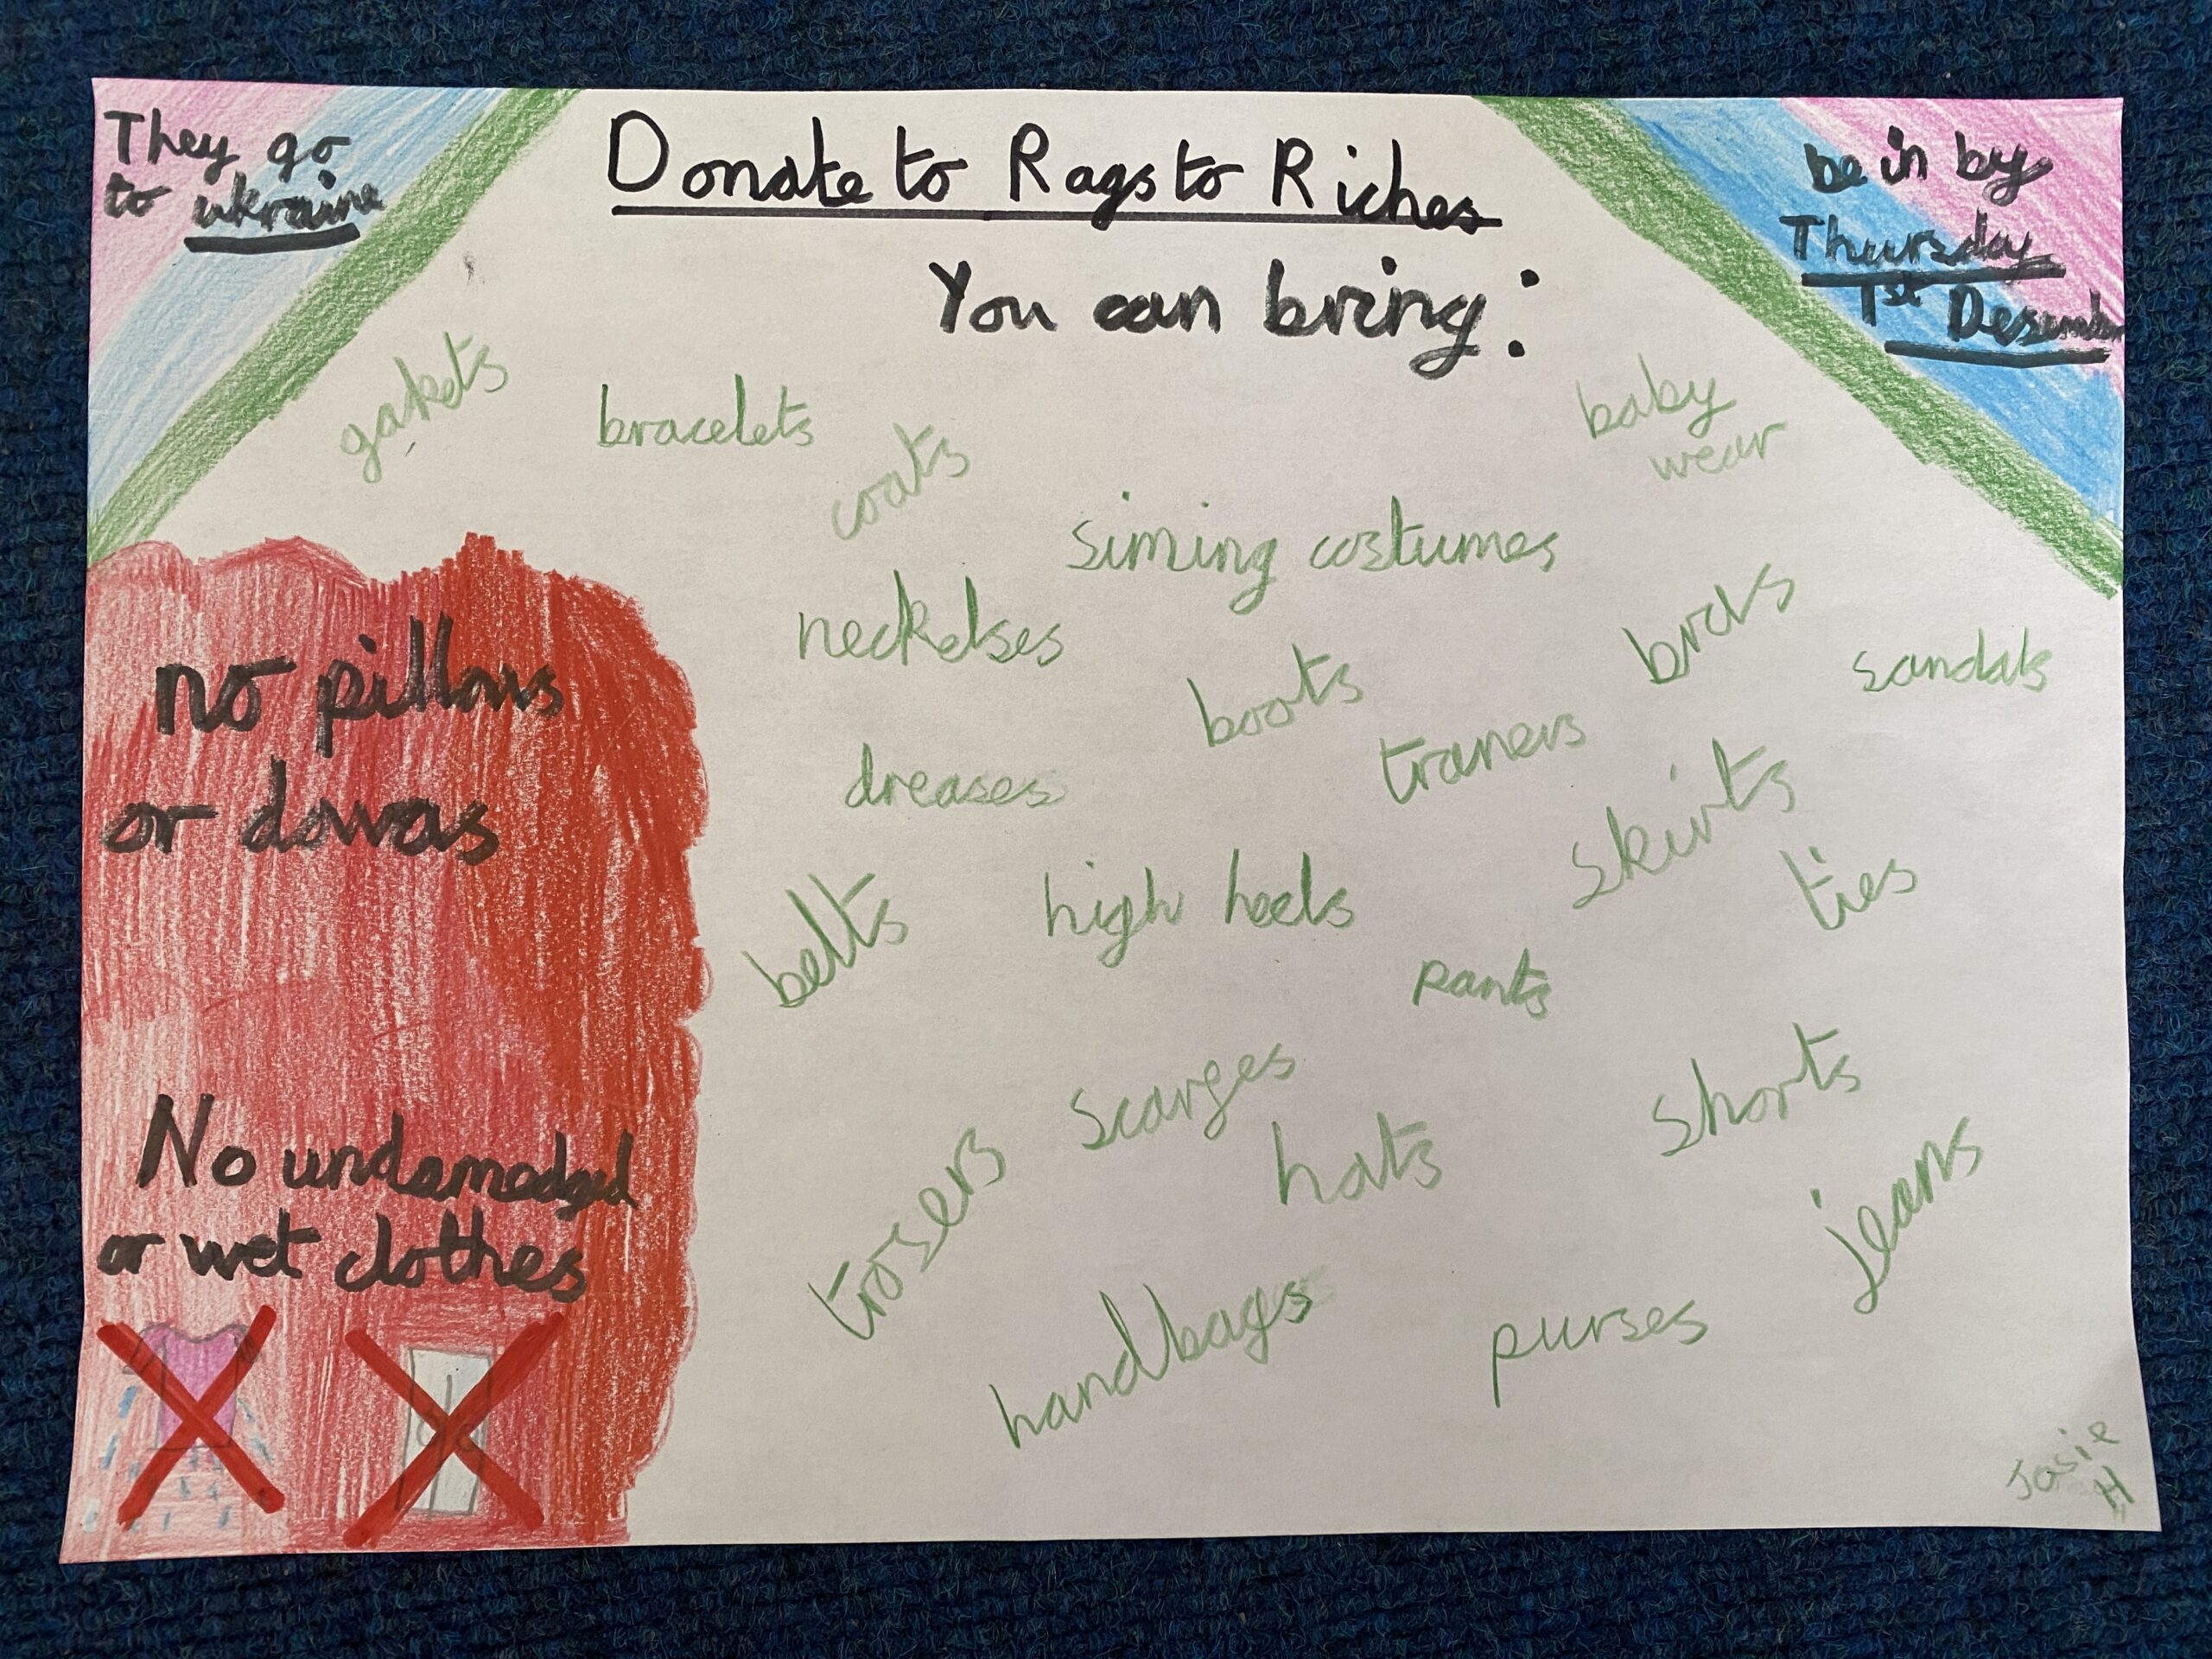 They go
to ukraine
Donate to Rags to Riches
be in by
Thursday
1st Desember
You can bring:
gakets
bracelets
coats
baby
wear
siming costumes
neckelses
boots
bras
sandals
dreases
traners
skirts
ties
belts
high heels
pants
scarfes
shorts
trosers
hats
jeans
handbags
purses
no pillows
or dovas
No undamadged
or wet clothes
Josie
H